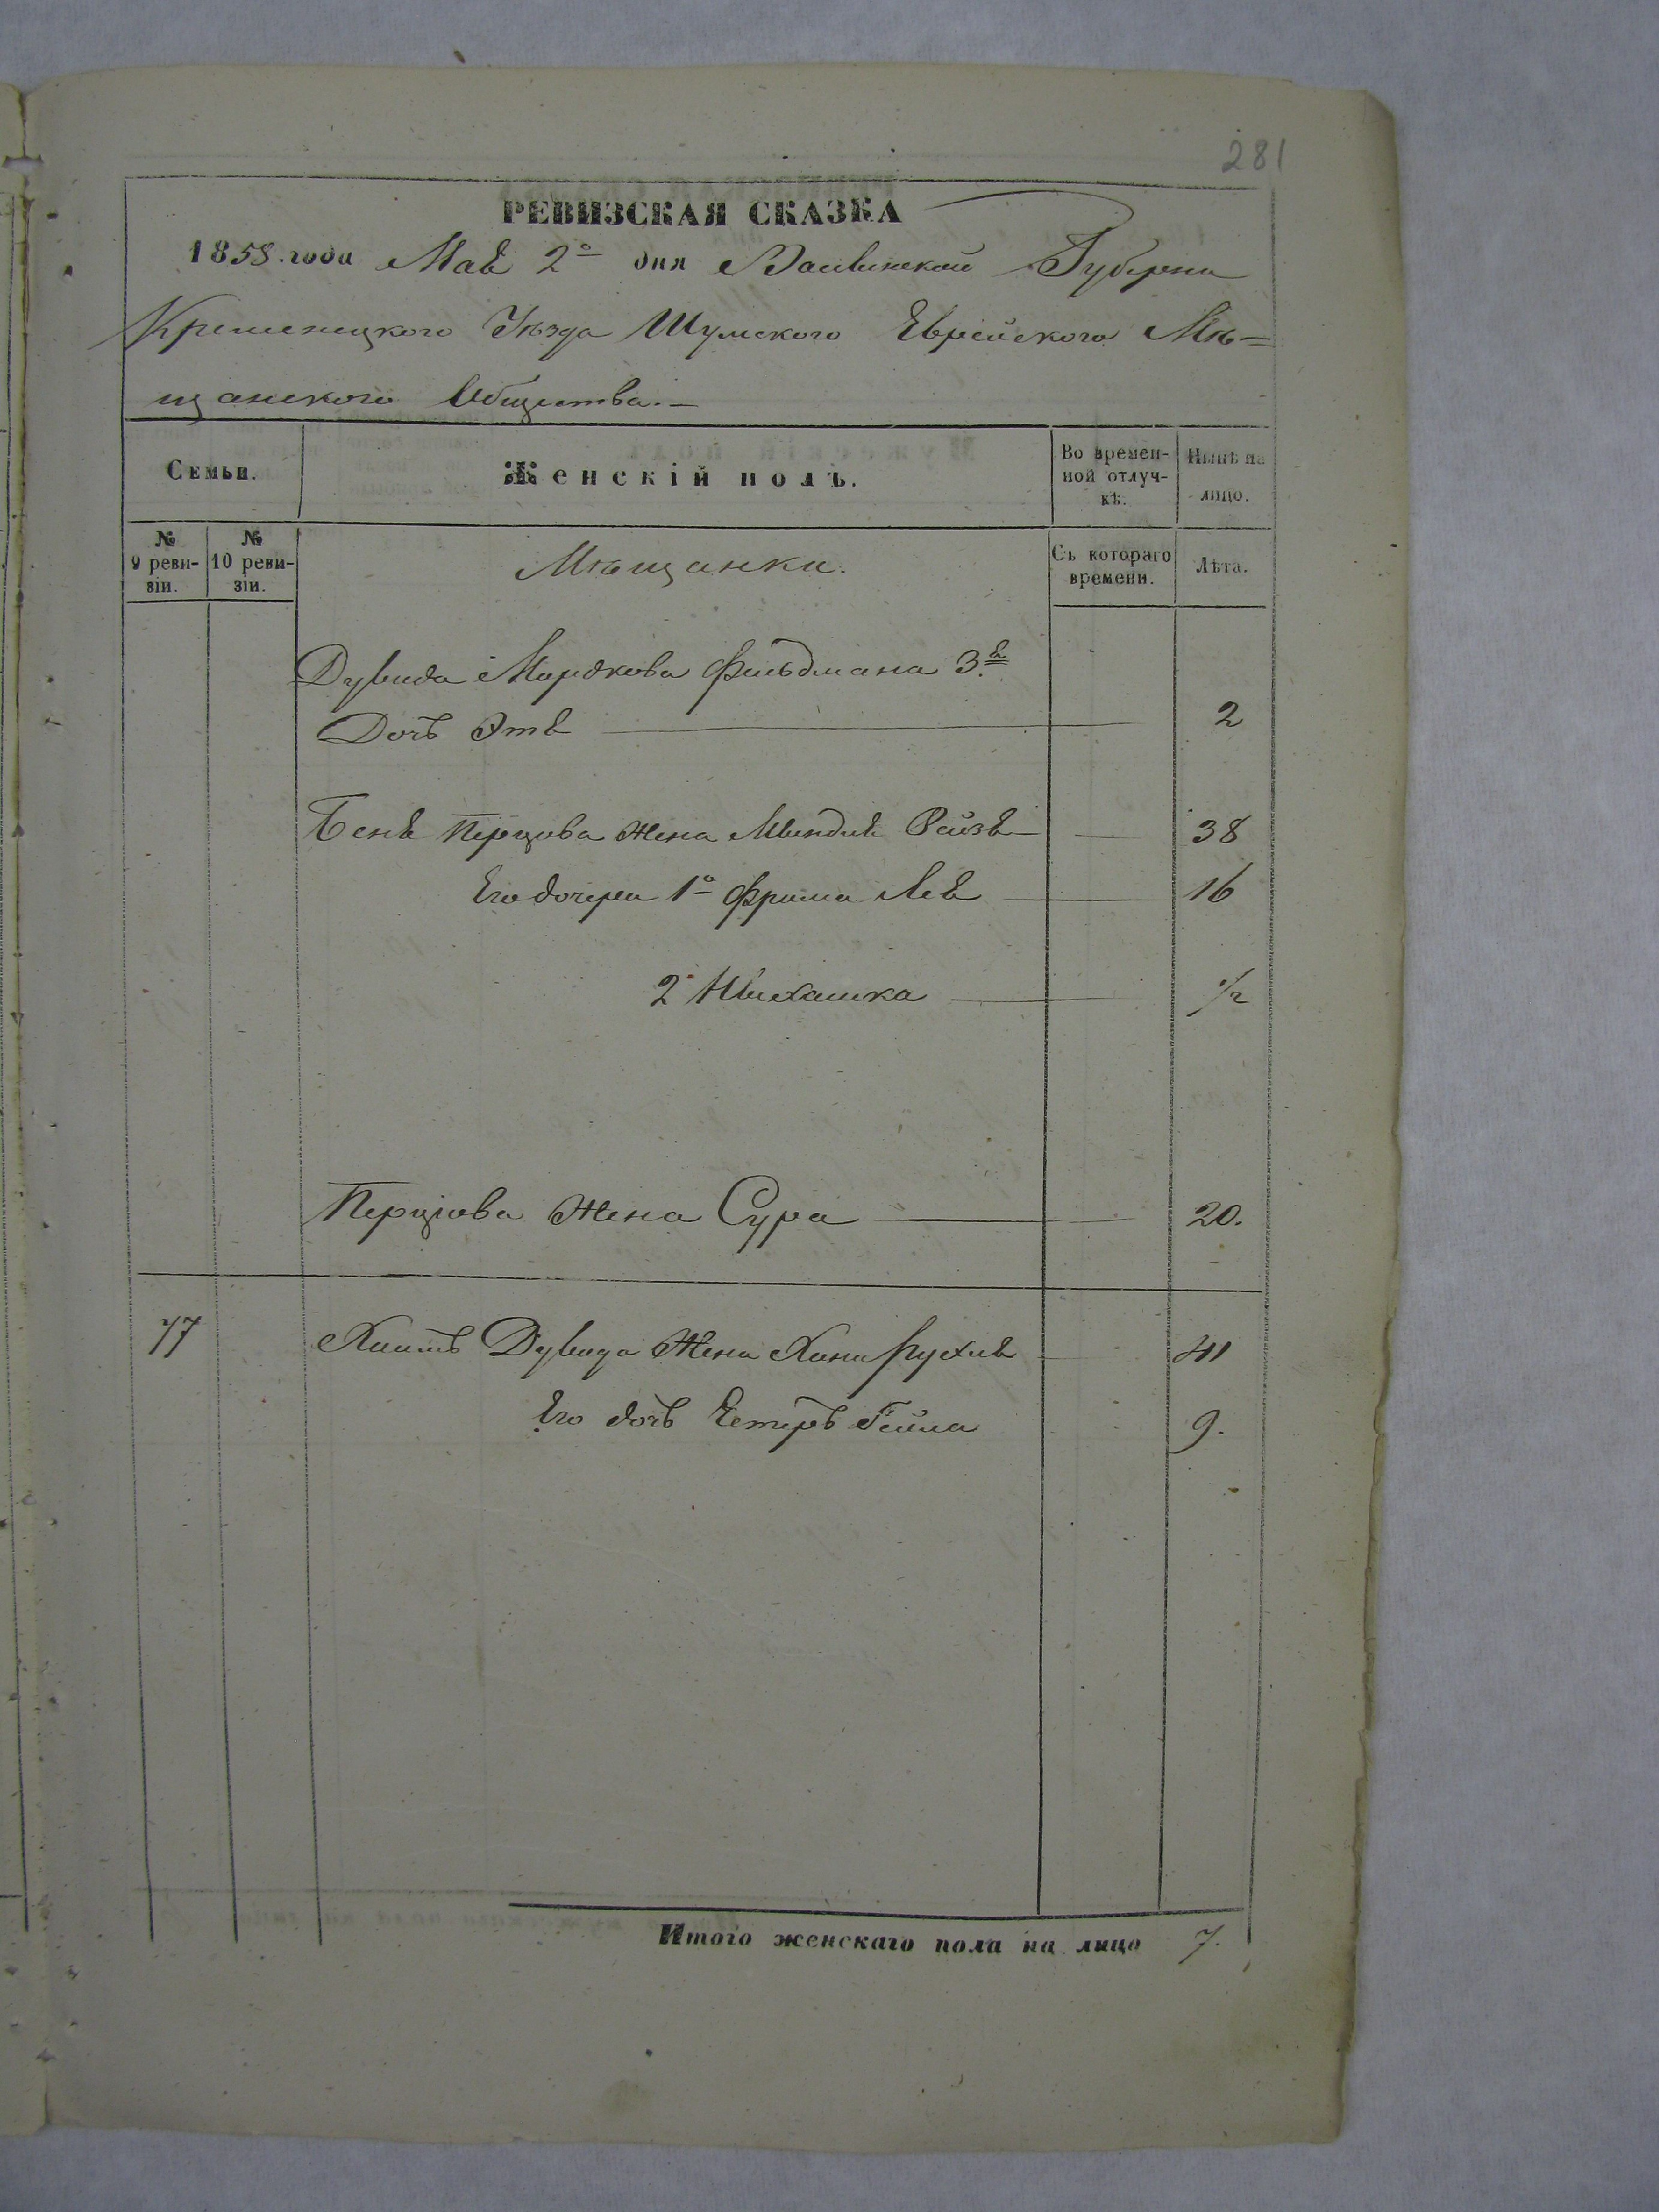 281
РЕВИЗСКАЯ СКАЗКА
1858 года Мая 2го дня Волынской Губерни
Кременецкого Уѣзда Шумского Еврейского Мѣ=
щанского Общества.
Семьи.
Женскій полъ.
Во времен-
ной отлуч-
кѣ.
Нынѣ на
лицо.
№
9 реви-
зіи.
№
10 реви-
зіи.
Мѣщанки.
Съ котораго
времени.
Лѣта.
Дувида Мордкова Фельдмана 3.я
Дочь Этя 2
Беня Перцова жена Миндля Рейзя 38
Его дочери 1о Фрима Лея 16
2 1/2
Перцова жена Сура 20.
77 Хаимъ Дувида Жена Хана Рухля 41
Его дочь Естеръ Гейла 9.
Итого женскаго пола на лицо 7.